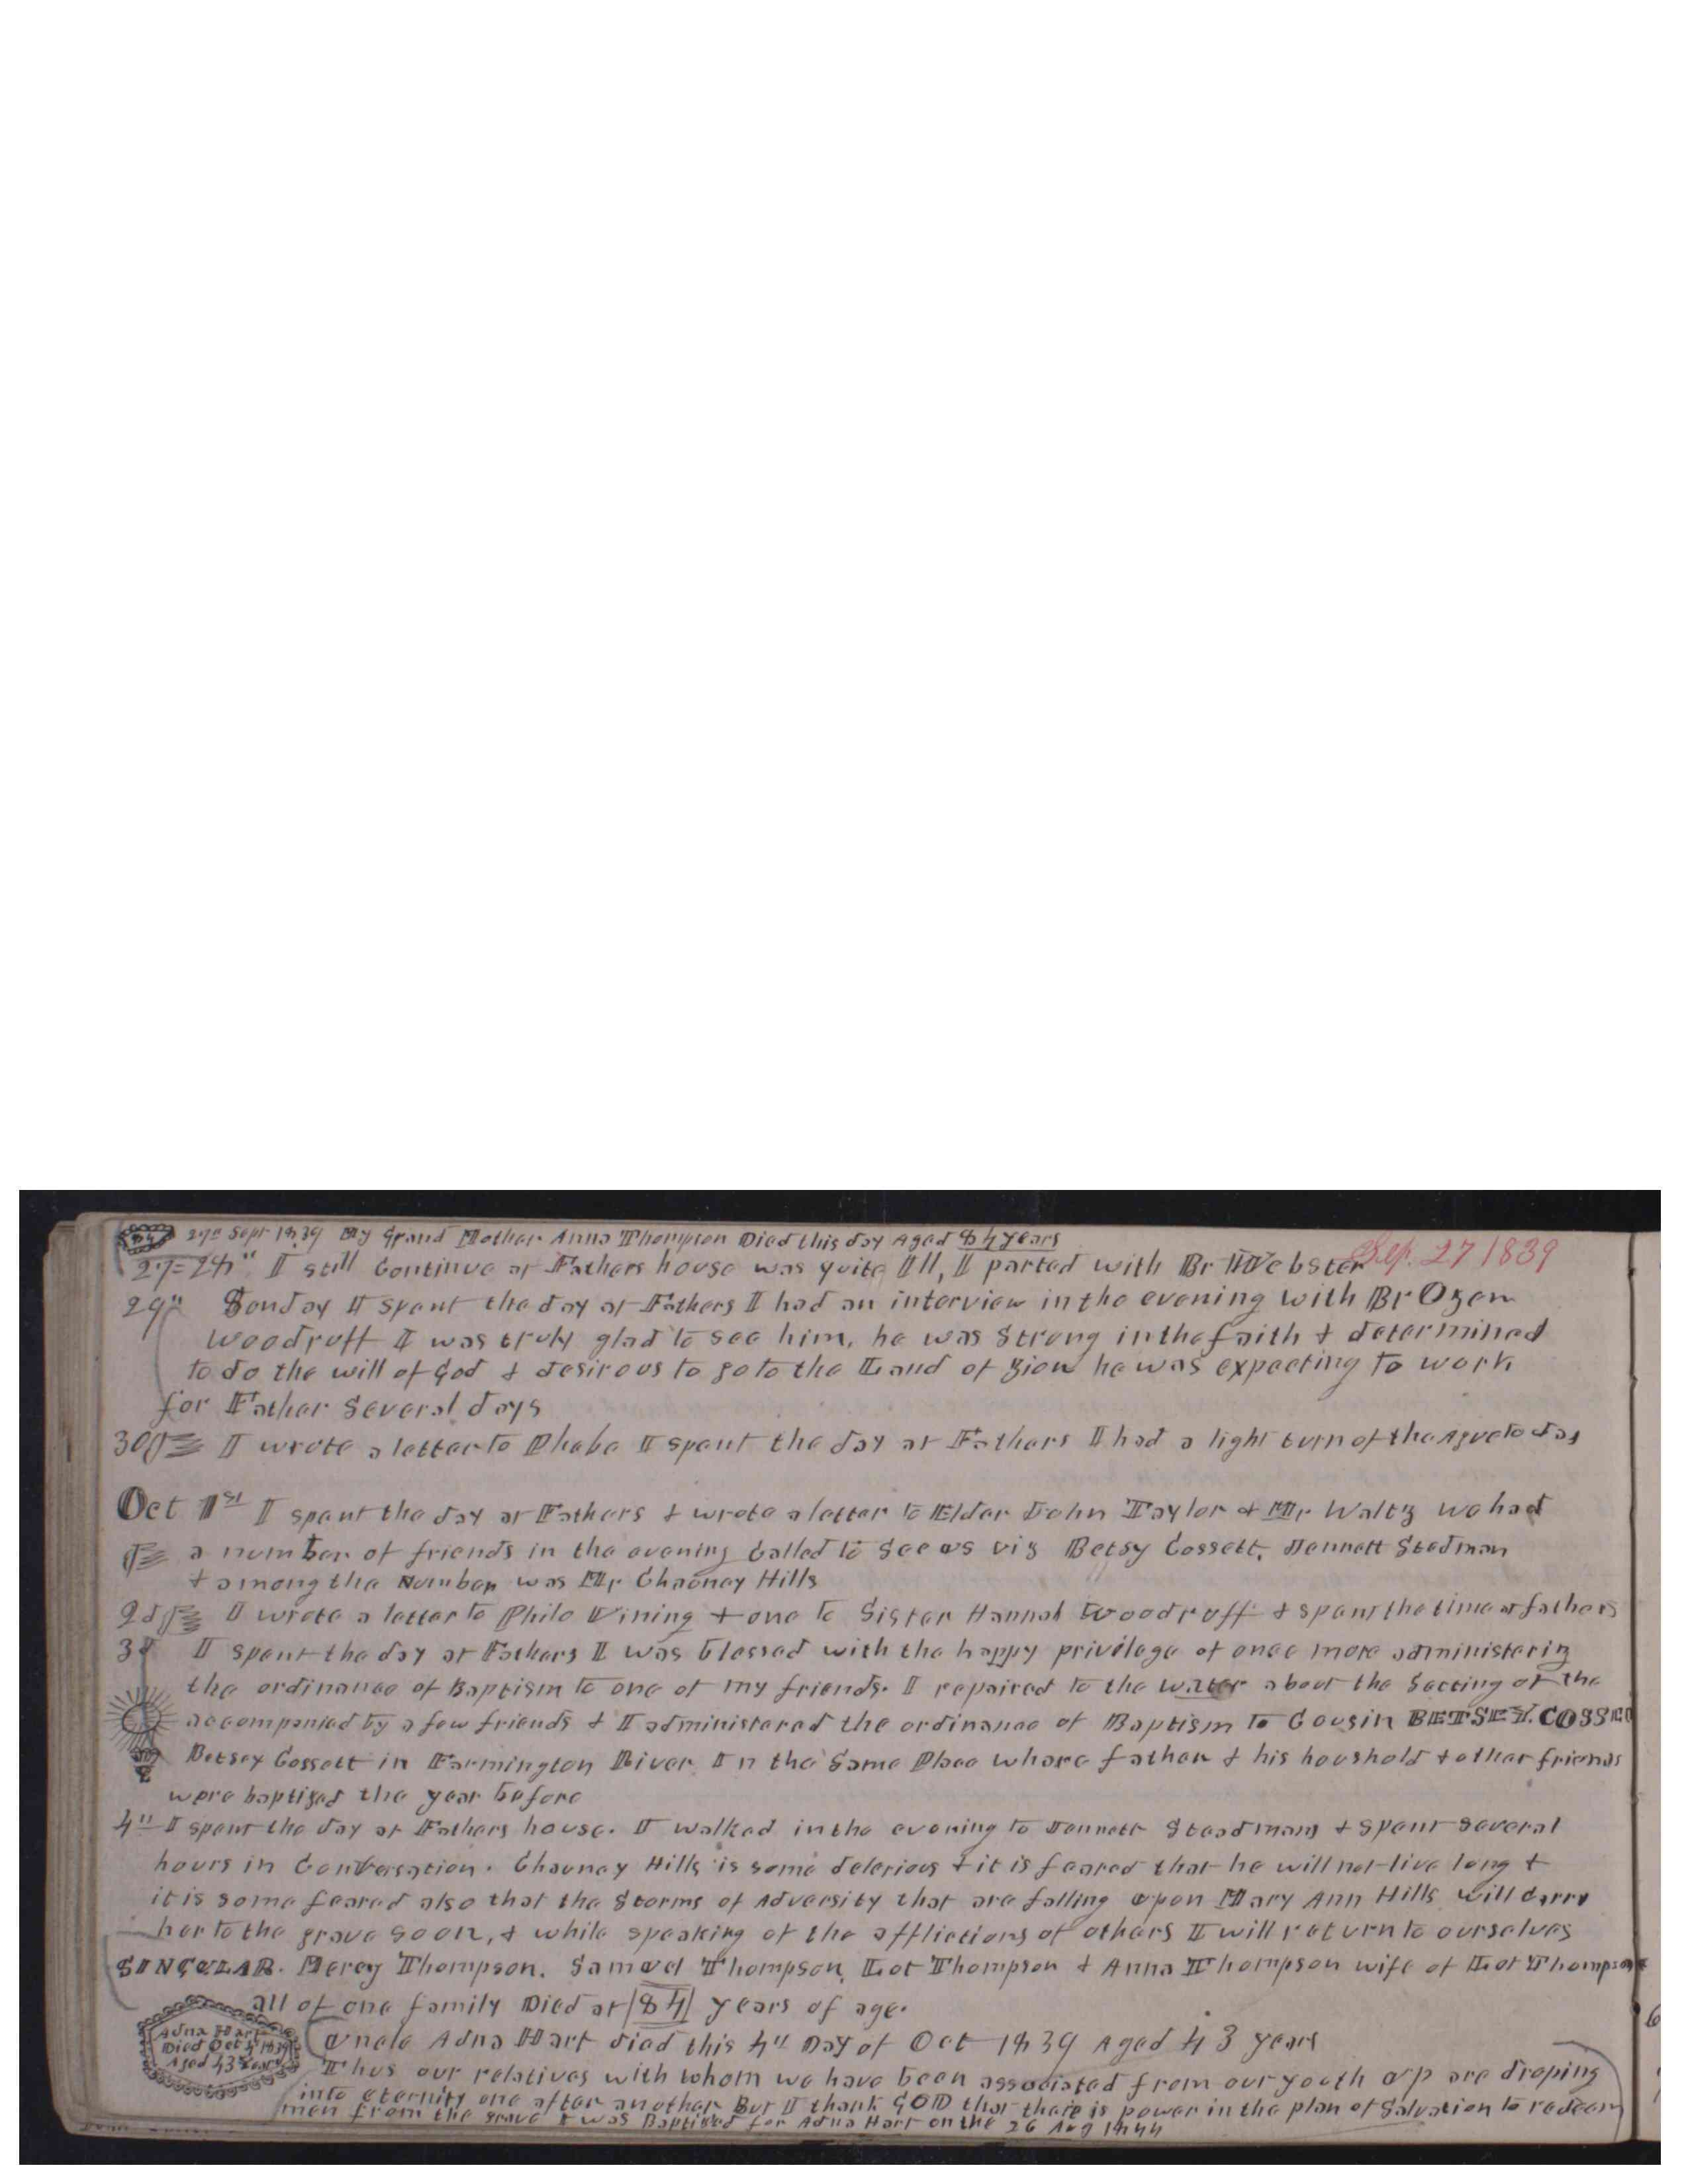 84 27th Sept 1839 My Grand Mother Anna Thompson Died this day Aged 84 years
Sep. 27 1839
27=28" I still Continue at Fathers house was quite Ill, I parted with Br Webster
29th Sunday I spent the day at Fathers I had an interview in the evening with Br Ozem
Woodruff I was truly glad to see him, he was Strong in the faith & determined
to do the will of God & desirous to go to the Land of Zion he was expecting to work
for Father Several days
30th I wrote a letter to Phebe I spent the day at Fathers I had a light turn of the Ague to day
Oct 1st I spent the day at Fathers & wrote a letter to Elder John Taylor & Mr Waltz we had
a number of friends in the evening Called to See us viz Betsy Cossett, Jennett Stedman
& among the Number was Mr Chauncy Hills
2d I wrote a letter to Philo Vining & one to Sister Hannah Woodruff & spent the time at fathers
3d I spent the day at Fathers I was blessed with the happy privilege of once more administering
the ordinance of Baptism to one of my friends. I repaired to the water about the Setting of the
accompanied by a few friends & I administered the ordinance of Baptism to Cousin BETSEY. COSSET
Betsey Cossett in Farmington River In the Same Place where father & his houshold & other friends
were baptized the year before
4" I spent the day at Fathers house. I walked in the evening to Jennett Steadmans & spent several
hours in Conversation. Chauncy Hills is some delerious & it is feared that he will not live long &
it is some feared also that the Storms of Adversity that are falling upon Mary Ann Hills will carry
her to the grave soon, & while speaking of the afflictions of others I will return to ourselves
SINGULAR. Mercy Thompson. Samuel Thompson, Lot Thompson & Anna Thompson wife of Lot Thompson
all of one family Died at 84 years of age.
Adna Hart
Died Oct 4 1839
Aged 43 Years
Uncle Adna Hart died this 4" Day of Oct 1839 Aged 43 years
Thus our relatives with whom we have been associated from our youth up are droping
into eternity one after another But I thank GOD that there is power in the plan of Salvation to redeem
men from the grave I was Baptized for Adna Hart on the 26 Aug 1844